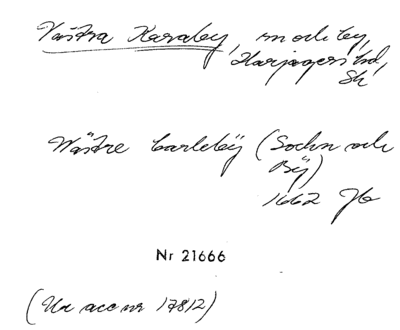 Västra Karaby, sn och by,
Harjagers hd,
Sk
Wästre Carlebÿ (Sochn och
Bÿ)
1662 Jb
Nr 21666
(Ur acc nr 17812)